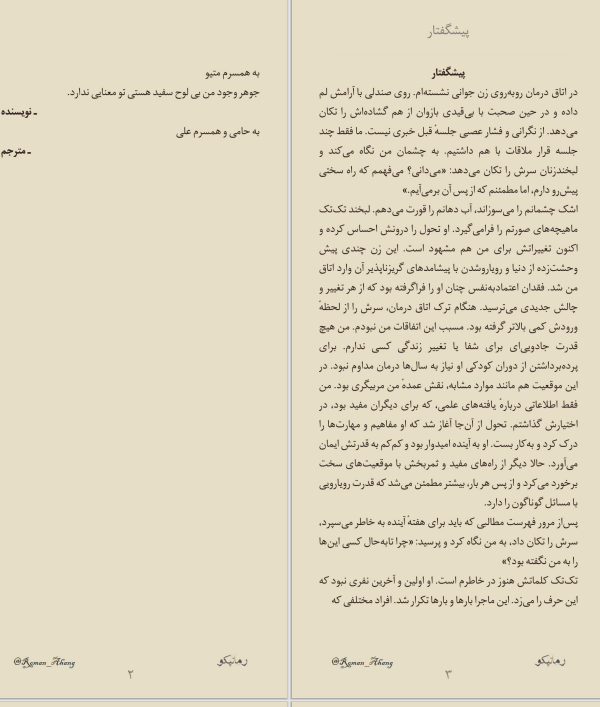 به همسرم متیو
جوهر وجود من بی لوح سفید هستی تو معنایی ندارد.
ـ نویسنده
به حامی و همسرم علی
ـ مترجم
@Roman_Ahang
رمانیکو
۲
پیشگفتار
پیشگفتار
در اتاق درمان روبه‌روی زن جوانی نشسته‌ام. روی صندلی با آرامش لم
داده و در حین صحبت با بی‌قیدی بازوان از هم گشاده‌اش را تکان
می‌دهد. از نگرانی و فشار عصبی جلسهٔ قبل خبری نیست. ما فقط چند
جلسه قرار ملاقات با هم داشتیم. به چشمان من نگاه می‌کند و
لبخندزنان سرش را تکان می‌دهد: «می‌دانی؟ می‌فهمم که راه سختی
پیش‌رو دارم، اما مطمئنم که از پس آن برمی‌آیم.»
اشک چشمانم را می‌سوزاند، آب دهانم را قورت می‌دهم. لبخند تک‌تک
ماهیچه‌های صورتم را فرامی‌گیرد. او تحول را درونش احساس کرده و
اکنون تغییراتش برای من هم مشهود است. این زن چندی پیش
وحشت‌زده از دنیا و رویاروشدن با پیشامدهای گریزناپذیر آن وارد اتاق
من شد. فقدان اعتمادبه‌نفس چنان او را فراگرفته بود که از هر تغییر و
چالش جدیدی می‌ترسید. هنگام ترک اتاق درمان، سرش را از لحظهٔ
ورودش کمی بالاتر گرفته بود. مسبب این اتفاقات من نبودم. من هیچ
قدرت جادویی‌ای برای شفا یا تغییر زندگی کسی ندارم. برای
پرده‌برداشتن از دوران کودکی او نیاز به سال‌ها درمان مداوم نبود. در
این موقعیت هم مانند موارد مشابه، نقش عمدهٔ من مربیگری بود. من
فقط اطلاعاتی دربارهٔ یافته‌های علمی، که برای دیگران مفید بود، در
اختیارش گذاشتم. تحول از آن‌جا آغاز شد که او مفاهیم و مهارت‌ها را
درک کرد و به‌کار بست. او به آینده امیدوار بود و کم‌کم به قدرتش ایمان
می‌آورد. حالا دیگر از راه‌های مفید و ثمربخش با موقعیت‌های سخت
برخورد می‌کرد و از پس هر بار، بیشتر مطمئن می‌شد که قدرت رویارویی
با مسائل گوناگون را دارد.
پس‌از مرور فهرست مطالبی که باید برای هفتهٔ آینده به خاطر می‌سپرد،
سرش را تکان داد، به من نگاه کرد و پرسید: «چرا تابه‌حال کسی این‌ها
را به من نگفته بود؟»
تک‌تک کلماتش هنوز در خاطرم است. او اولین و آخرین نفری نبود که
این حرف را می‌زد. این ماجرا بارها و بارها تکرار شد. افراد مختلفی که
@Roman_Ahang
رمانیکو
۳